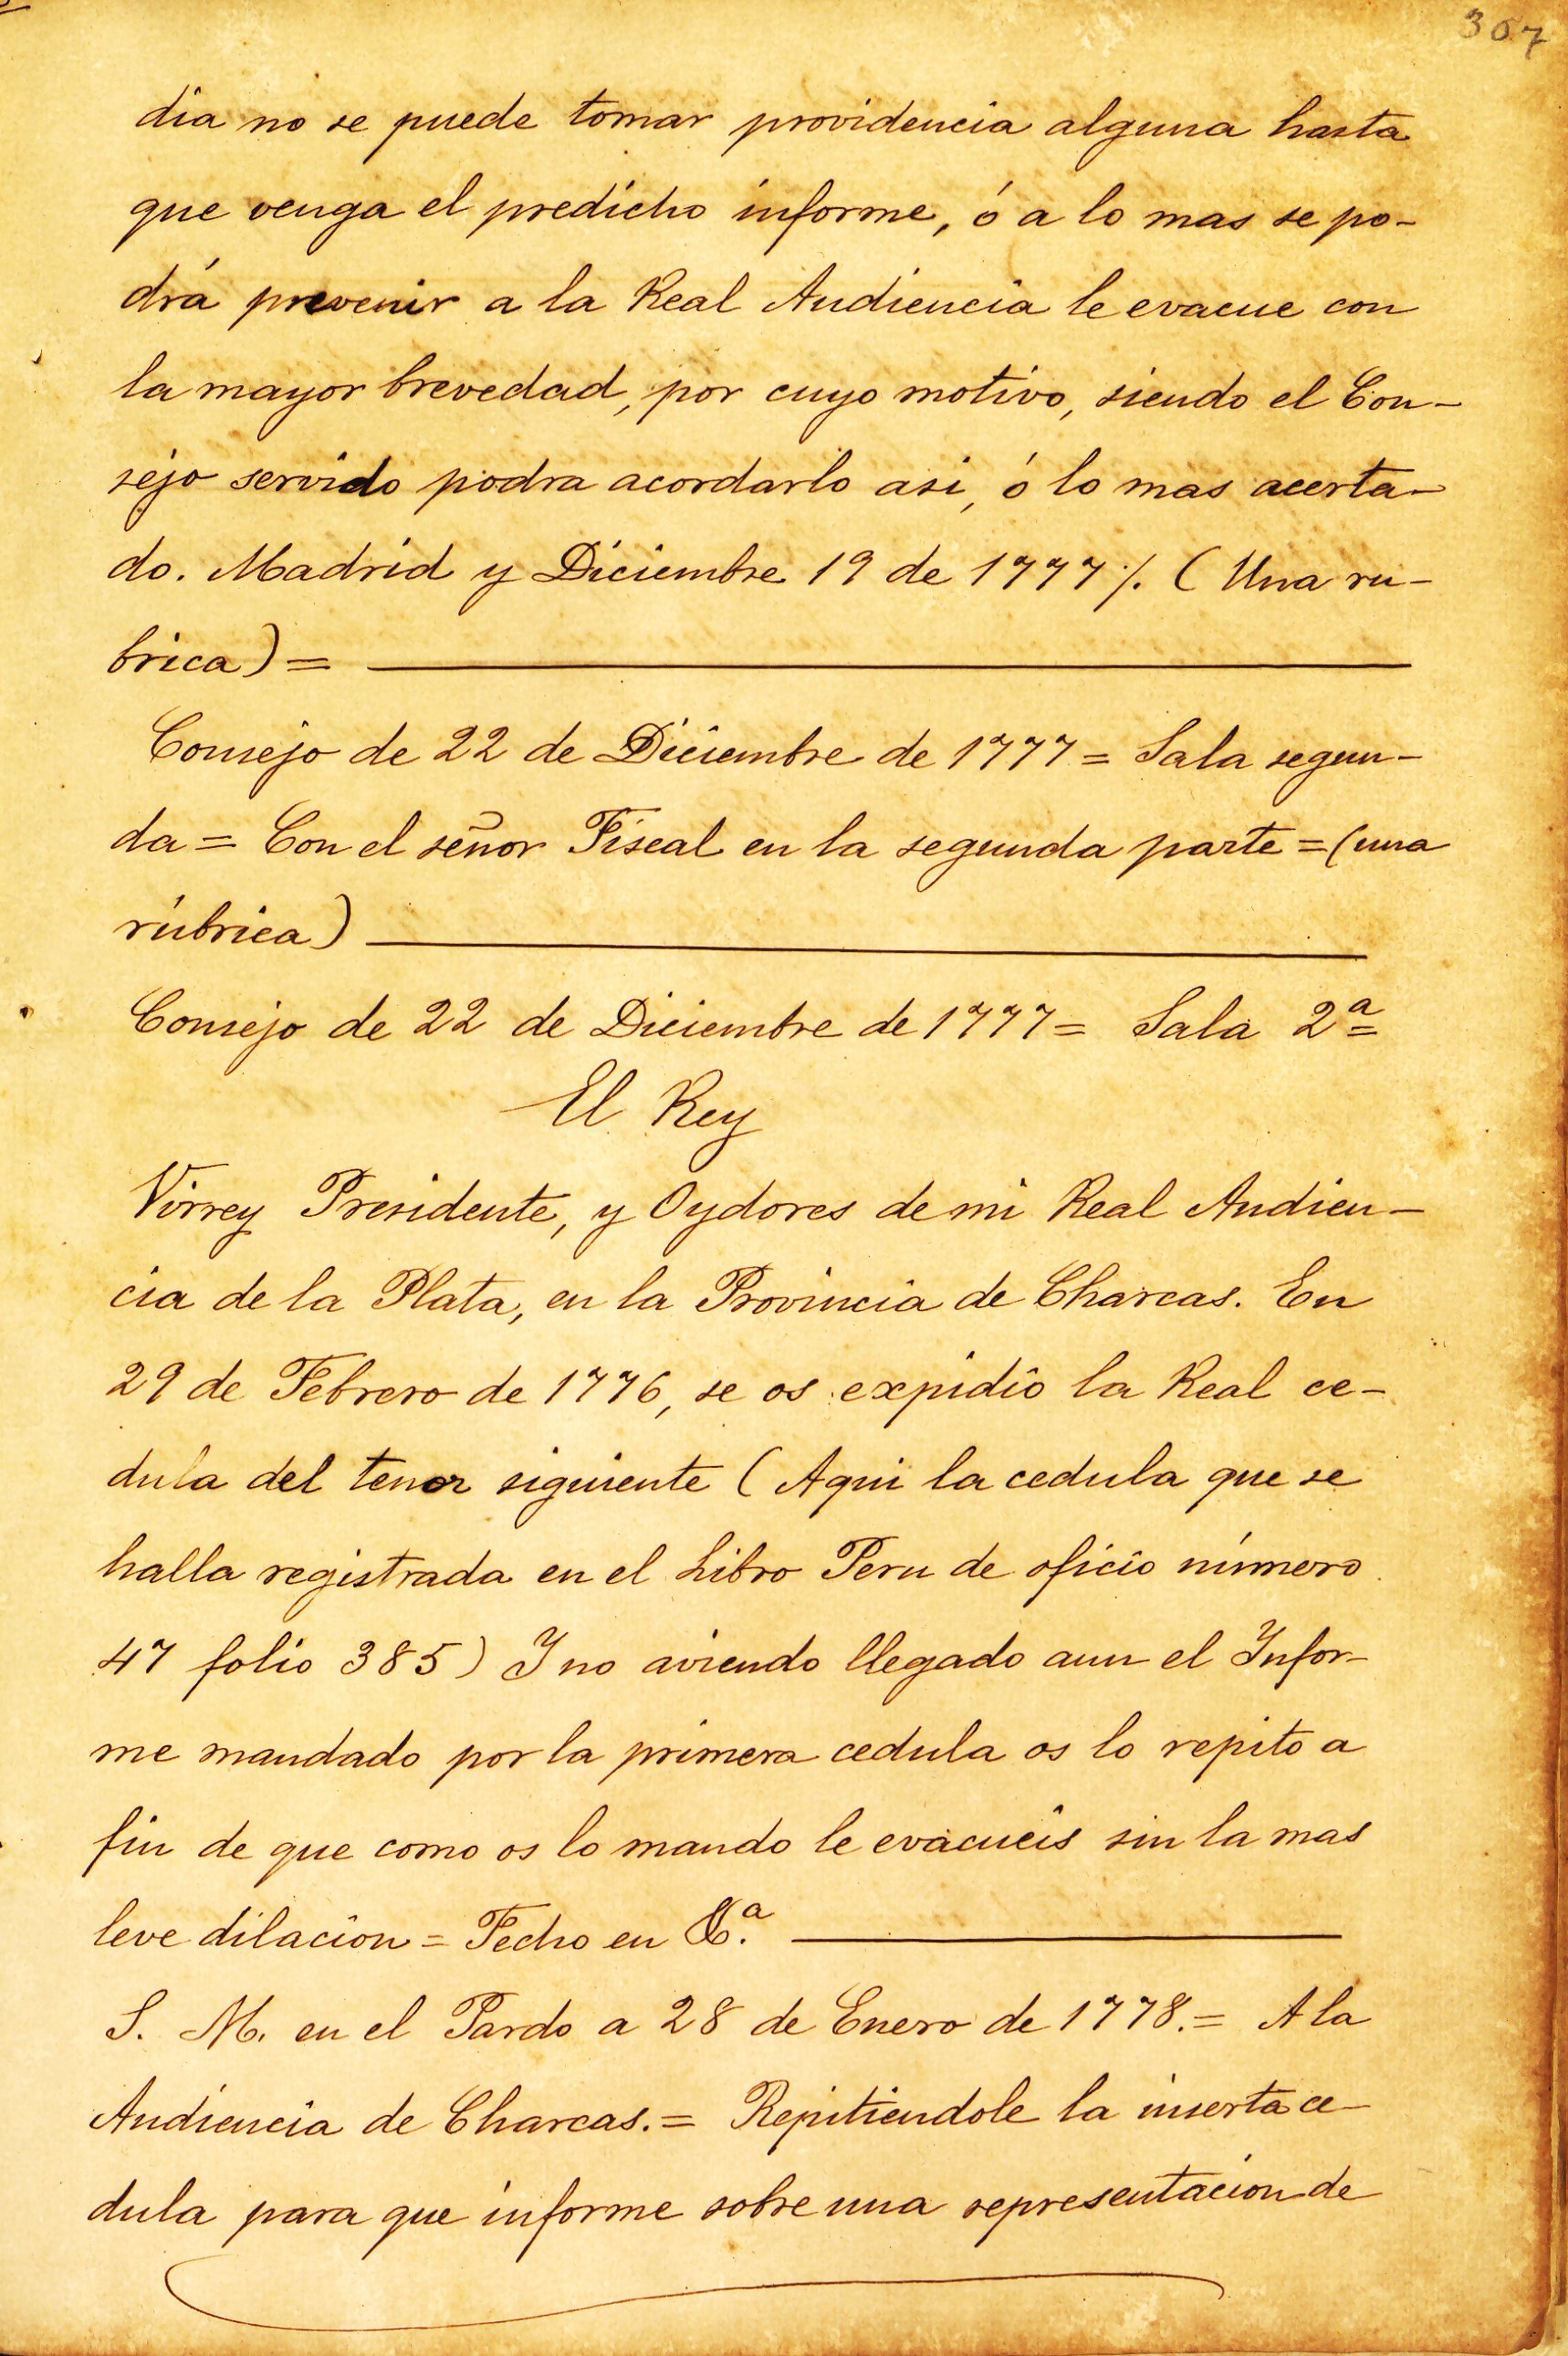 307
dia no se puede tomar providencia alguna hasta
que venga el predicho informe, ó a lo mas se po-
drá prevenir a la Real Audiencia le evacue con
la mayor brevedad, por cuyo motivo, siendo el Con-
sejo servido podra acordarlo asi, ó lo mas acerta-
do. Madrid y Diciembre 19 de 1777 /. (Una ru-
brica) =
Consejo de 22 de Diciembre de 1777 = Sala segun-
da = Con el señor Fiscal en la segunda parte = (una
rúbrica)
Consejo de 22 de Diciembre de 1777 = Sala 2ª =
El Rey
Virrey Presidente, y Oydores de mi Real Audien-
cia de la Plata, en la Provincia de Charcas. En
29 de Febrero de 1776, se os expidio la Real ce-
dula del tenor siguiente (Aqui la cedula que se
halla registrada en el Libro Peru de oficio número
47 folio 385) Y no aviendo llegado aun el Infor-
me mandado por la primera cedula os lo repito a
fin de que como os lo mando le evacueis sin la mas
leve dilacion = Fecho en &.ª
S. M. en el Pardo a 28 de Enero de 1778. = A la
Audiencia de Charcas. = Repitiendole la inserta ce-
dula para que informe sobre una representacion de